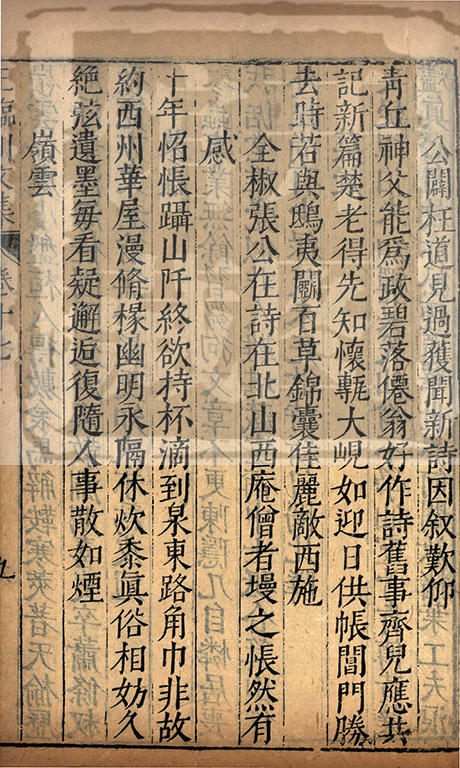 公闢枉道見過獲聞新詩因叙歎仰
青丘神父能爲政碧落僊翁好作詩舊事齊兒應共
記新篇楚老得先知懷甎大峴如迎日供帳閶門勝
去時若與鴟夷鬭百草錦囊佳麗敵西施
全椒張公在詩在北山西庵僧者墁之悵然有
感
十年怊悵躡山阡終欲持杯滴到泉東路角巾非故
約西州華屋漫脩椽幽明永隔休炊黍眞俗相妨久
絶弦遺墨毎看疑邂逅復隨人事散如煙
嶺雲
王臨川文集 卷十七
九